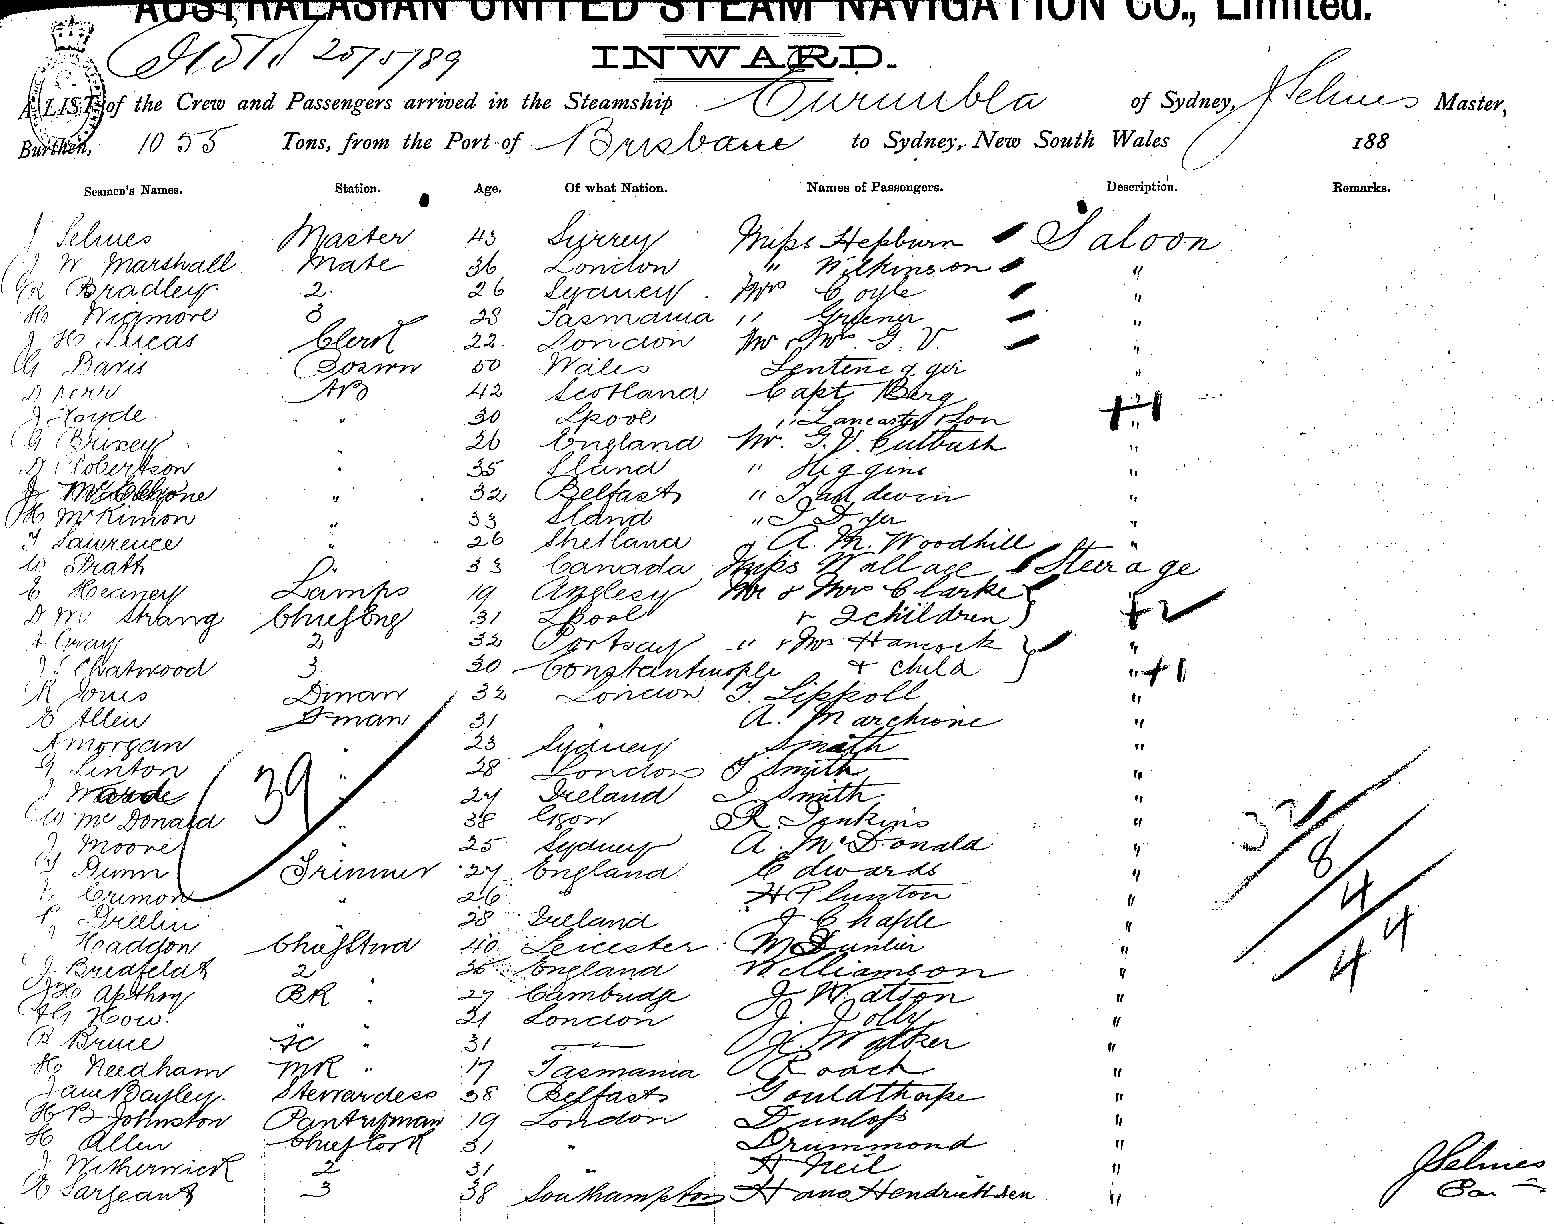 AUSTRALASIAN UNITED STEAM NAVIGATION CO., Limited.
20/5/89
INWARD.
A LIST of the Crew and Passengers arrived in the Steamship Eurumbla of Sydney, J Selmes Master,
Burthen, 1055 Tons, from the Port of Brisbane to Sydney, New South Wales 188
Seamen's Names. Station. Age. Of what Nation. Names of Passengers. Description. Remarks.
J Selmes Master 43 Surrey Miss Hepburn Saloon
J W Marshall Mate 36 London " Wilkinson "
Bradley 2 26 Sydney Mrs Coyle "
Wigmore 3 23 Tasmania " Greener "
J H Lucas Clerk 22 London Mr & Mrs G. V. "
G Davis Boswn 50 Wales "
AB 42 Scotland Capt. Berg "
J Hoyde " 30 Lpool " Lancaster & Son +1
G Brixey 26 England Mr. G. V. Cutbush "
D Robertson " 35 Sland " Higgins "
J 32 Belfast "
H McKinnon " 33 Sland " J Dyer "
T Lawrence " 26 Shetland A. M. Woodhill "
W Strath " 33 Canada Miss Wallace Steerage
E Heaney Lamps 19 Anglesy Mr & Mrs Clarke "
D M Strang Chief Eng 31 Lpool & 2 children +2
A Gray 2 32 Portsay " & Mrs Hancock "
Chatwood 3 30 Constantinople & child " +1
R Jones Dman 32 London T. Lippoll "
E Allen Fman 31 A. Marchione "
A Morgan 23 Sydney Smith "
G Linton " 28 London T Smith "
J Waade " 27 Ireland J Smith "
39
W McDonald " 38 R. Jenkins "
J Moore 25 Sydney A. McDonald "
Dunn Trimmer 27 England Edwards "
Crimon " 26 " H Plunton "
P. 28 Ireland J Chaple "
Haddon Chief Stwd 40 Leicester M Dunlier "
J. Bredfeldt 2 " England Williamson "
J H Apthorp BR " 27 Cambridge J Watson "
How. " 21 London J. Jolly "
B Bruce SC " 31 J. Walker "
H Needham MR " 17 Tasmania Roach "
Jane Bayley Stewardess 38 Belfast Gouldthorpe "
H B Johnston Pantryman 19 London Dunlop "
H Allen Chief Cook 31 " Drummond "
J Witherwick 2 31 " H Neil "
Sargeant 3 38 Southampton Hans Hendricksen "
32
8
4
44
J Selmes